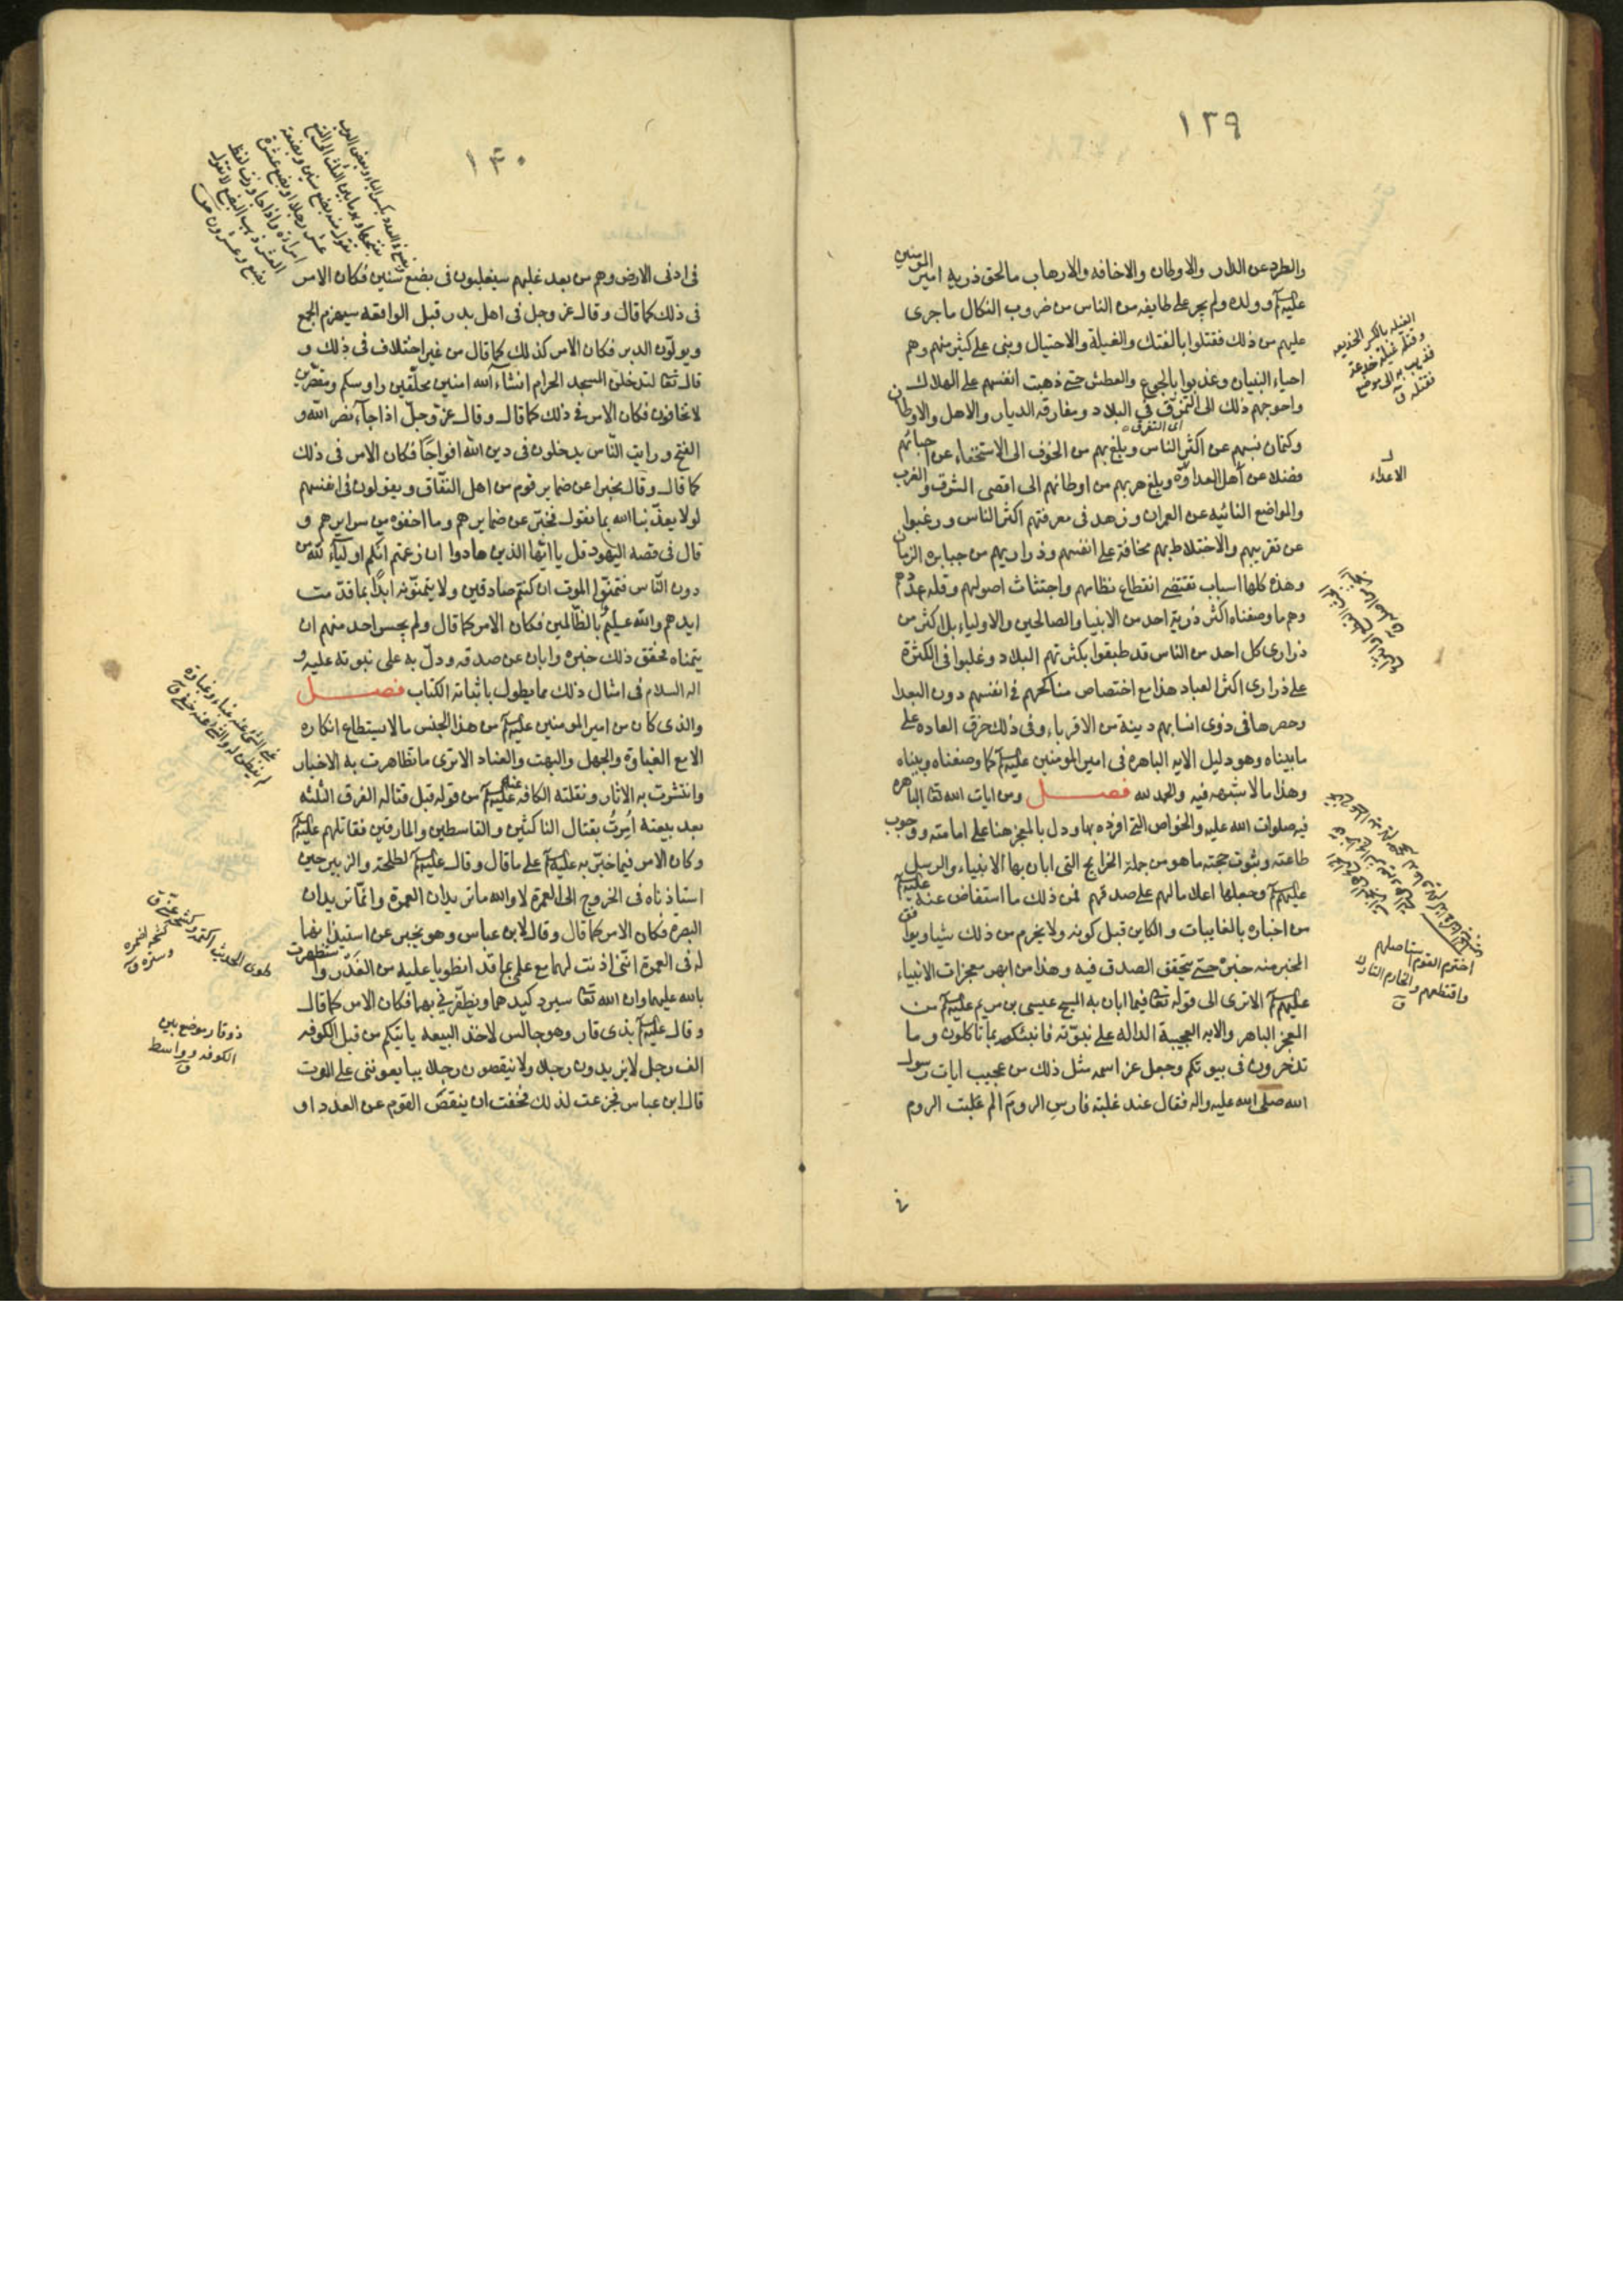 ١٣٩
والطرد عن الديار والاوطان والاخافه والارهاب ما لحق ذريه امير المومنين
عليهم وولده ولم يجر على طايفه من الناس من ضروب النكال ما جرى
عليهم من ذلك فقتلوا بالفتك والغيلة والاحتيال وبنى على كثير منهم وهم
احياء البنيان وعذبوا بالجوع والعطش حتى ذهبت انفسهم على الهلاك
واحوجهم ذلك الى التمزق في البلاد ومفارقه الديار والاهل والاوطان
اى التفرق
وكتمان نسبهم عن اكثر الناس وبلغ بهم من الخوف الى الاستخفاء عن احبائهم
فضلا عن اهل العداوة وبلغ هربهم من اوطانهم الى اقصى الشرق والغرب
والمواضع النائيه عن العمران وزهد فى معرفتهم اكثر الناس ورغبوا
عن تقريبهم والاختلاط بهم مخافة على انفسهم وذراريهم من جبابره الزمان
وهذه كلها اسباب تقتضى انقطاع نظامهم واجتثاث اصولهم وقله عددهم
وهم ما وصفناه اكثر ذرية احد من الانبيا والصالحين والاولياء بل اكثر من
ذرارى كل احد من الناس قد طبقوا بكثرتهم البلاد وغلبوا فى الكثرة
على ذرارى اكثر العباد هذا مع اختصاص مناكحهم فى انفسهم دون البعدا
وحصرها فى ذوى انسابهم دينة من الاقرباء وفى ذلك خرق العاده على
ما بيناه وهو دليل الايه الباهره فى امير المومنين عليه كما وصفناه وبيناه
وهذا ما لا شبهه فيه والحمد لله فصل ومن ايات الله تعا الباهره
فيه صلوات الله عليه والخواص التى افرده بها ودل بالمعجز منها على امامته ووجوب
طاعته وثبوت حجته ما هو من جملة الخرايج التى ابان بها الانبياء والرسل
عليهم وجعلها اعلاما لهم على صدقهم فمن ذلك ما استفاض عنه عليه
من اخباره بالغايبات والكاين قبل كونه ولا يخرم من ذلك شيا ويوافق
المخبر منه خبره حتى يتحقق الصدق فيه وهذا من ابهر معجزات الانبياء
عليهم الا ترى الى قوله تعا فيما ابان به المسيح عيسى بن مريم عليه من
المعجز الباهر والايه العجيبة الداله على نبوته فانبئكم بما تاكلون وما
تدخرون فى بيوتكم وجعل عز اسمه مثل ذلك من عجيب ايات رسول
الله صلى الله عليه واله فقال عند غلبة فارس الروم الم غلبت الروم
فى
الغيله بالكسر الخديعه
وقتله غيلة خدعة
فذهب به الى موضع
فقتله ق
الاعداء
اخترم القوم استاصلهم
واقتطعهم والخارم التارك
ق
١٤٠
فى ادنى الارض وهم من بعد غلبهم سيغلبون فى بضع سنين فكان الامر
فى ذلك كما قال وقال عز وجل فى اهل بدر قبل الواقعه سيهزم الجمع
ويولون الدبر فكان الامر كذلك كما قال من غير اختلاف فى ذلك و
قال تعا لتدخلن المسجد الحرام انشاء الله امنين محلقين راوسكم ومقصرين
لا تخافون فكان الامر فى ذلك كما قال وقال عز وجل اذا جاء نصر الله و
الفتح ورايت الناس يدخلون فى دين الله افواجا فكان الامر فى ذلك
كما قال وقال مخبرا عن ضماير قوم من اهل النفاق ويقولون فى انفسهم
لولا يعذبنا الله بما نقول فخبر عن ضمايرهم وما اخفوه من سرايرهم و
قال فى قصه اليهود قل يا ايها الذين هادوا ان زعمتم انكم اولياء لله من
دون الناس فتمنوا الموت ان كنتم صادقين ولا يتمنونه ابدا بما قدمت
ايديهم والله عليم بالظالمين فكان الامر كما قال ولم يجسر احد منهم ان
يتمناه فحقق ذلك خبره وابان عن صدقه ودل به على نبوته عليه و
اله السلام فى امثال ذلك مما يطول باثباته الكتاب فصل
والذى كان من امير المومنين عليه من هذا الجنس ما لا يستطاع انكاره
الا مع الغباوة والجهل والبهت والعناد الا ترى ما تظاهرت به الاخبار
وانتشرت به الاثار ونقلته الكافه عنه عليه من قوله قبل قتاله الفرق الثلثه
بعد بيعته امرت بقتال الناكثين والقاسطين والمارقين فقاتلهم عليه
وكان الامر فيما خبر به عليه على ما قال وقال عليه لطلحة والزبير حين
استاذناه فى الخروج الى العمرة لا والله ما تريدان العمرة وانما تريدان
البصرة فكان الامر كما قال وقال لابن عباس وهو يخبر عن استيذانهما
له فى العمرة اننى اذنت لهما مع علمى بما قد انطويا عليه من الغدر واستظهرت
بالله عليهما وان الله تعا سيرد كيدهما ويظفرنى بهما فكان الامر كما قال
وقال عليه بذى قار وهو جالس لاخذ البيعه ياتيكم من قبل الكوفه
الف رجل لا يزيدون رجلا ولا ينقصون رجلا يبايعوننى على الموت
قال ابن عباس فجزعت لذلك فخفت ان ينقص القوم عن العدد او
طوى الحديث اكتمه
ذو قار موضع بين
الكوفه وواسط
ق